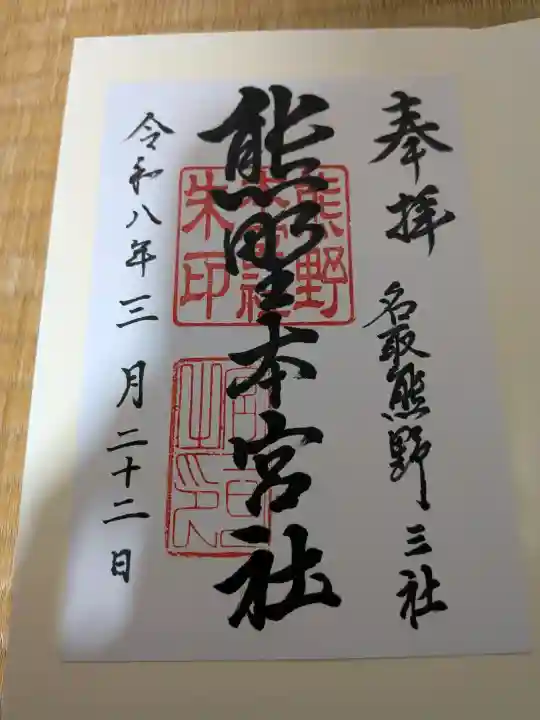 奉拝
名取熊野三社
熊野本宮社
熊野
本宮社
朱印
令和八年三月二十二日